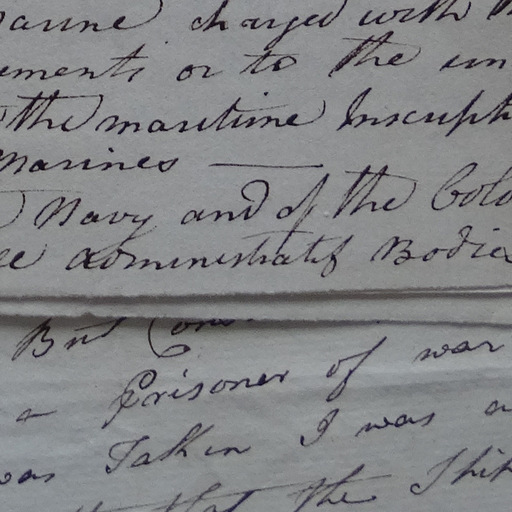 marine charged with
ements or to the un
the maritime Inscript
Marines
Navy and of the Colo
administratif Bodie
But Cons
a Prisoner of war
was Taken I was a
that the Ship